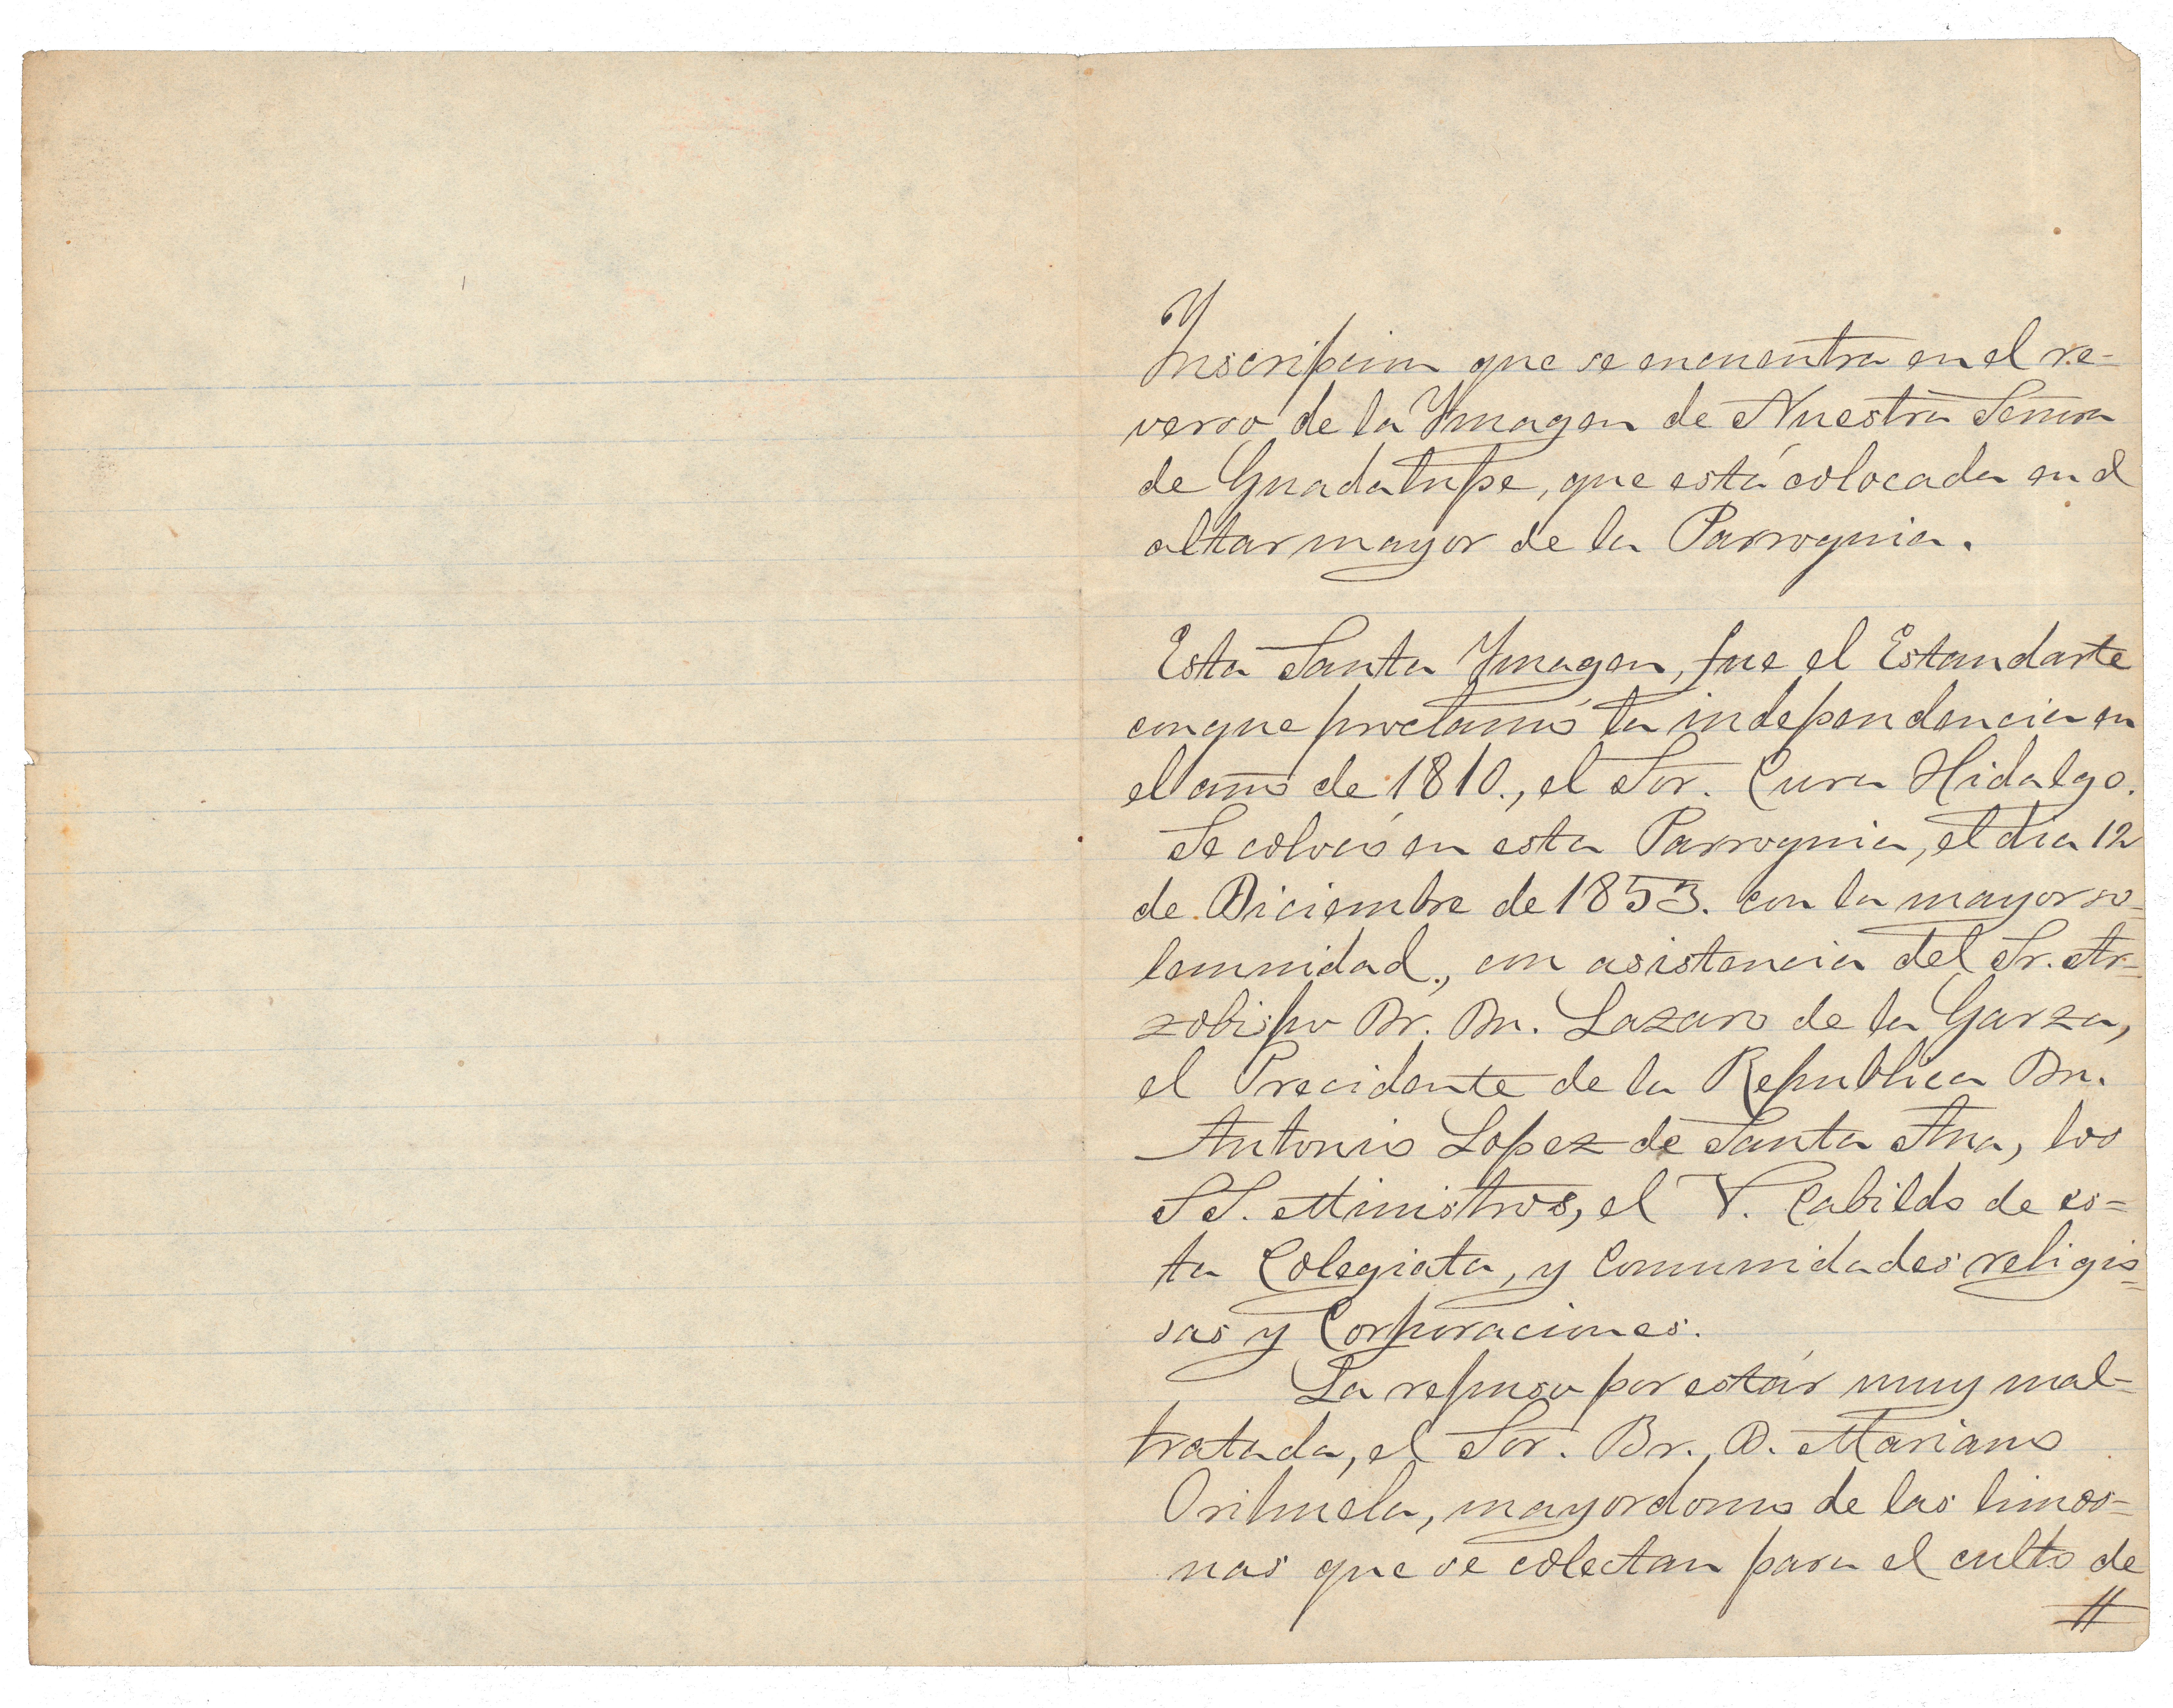 Ynscripcion que se encuentra en el re-
verso de la Ymagen de Nuestra Señora
de Guadalupe, que está colocada en el
altar mayor de la Parroquia.
Esta Santa Ymagen, fue el Estandarte
con que proclamó la independencia en
el año de 1810., el Sor. Cura Hidalgo.
Se colocó en esta Parroquia, el dia 12
de Diciembre de 1853. con la mayor so-
lemnidad., con asistencia del Sr. Ar=
zobispo Dr. Dn. Lazaro de la Garza,
el Precidente de la Republica Dn.
Antonio Lopez de Santa Ana, los
SS. Ministros, el V. Cabildo de es=
ta Colegiata, y Comunidades religio=
sas y Corporaciones.
La repuso por estár muy mal=
tratada, el Sor. Br., D. Mariano
Orihuela, mayordomo de las limos=
nas que se colectan para el culto de